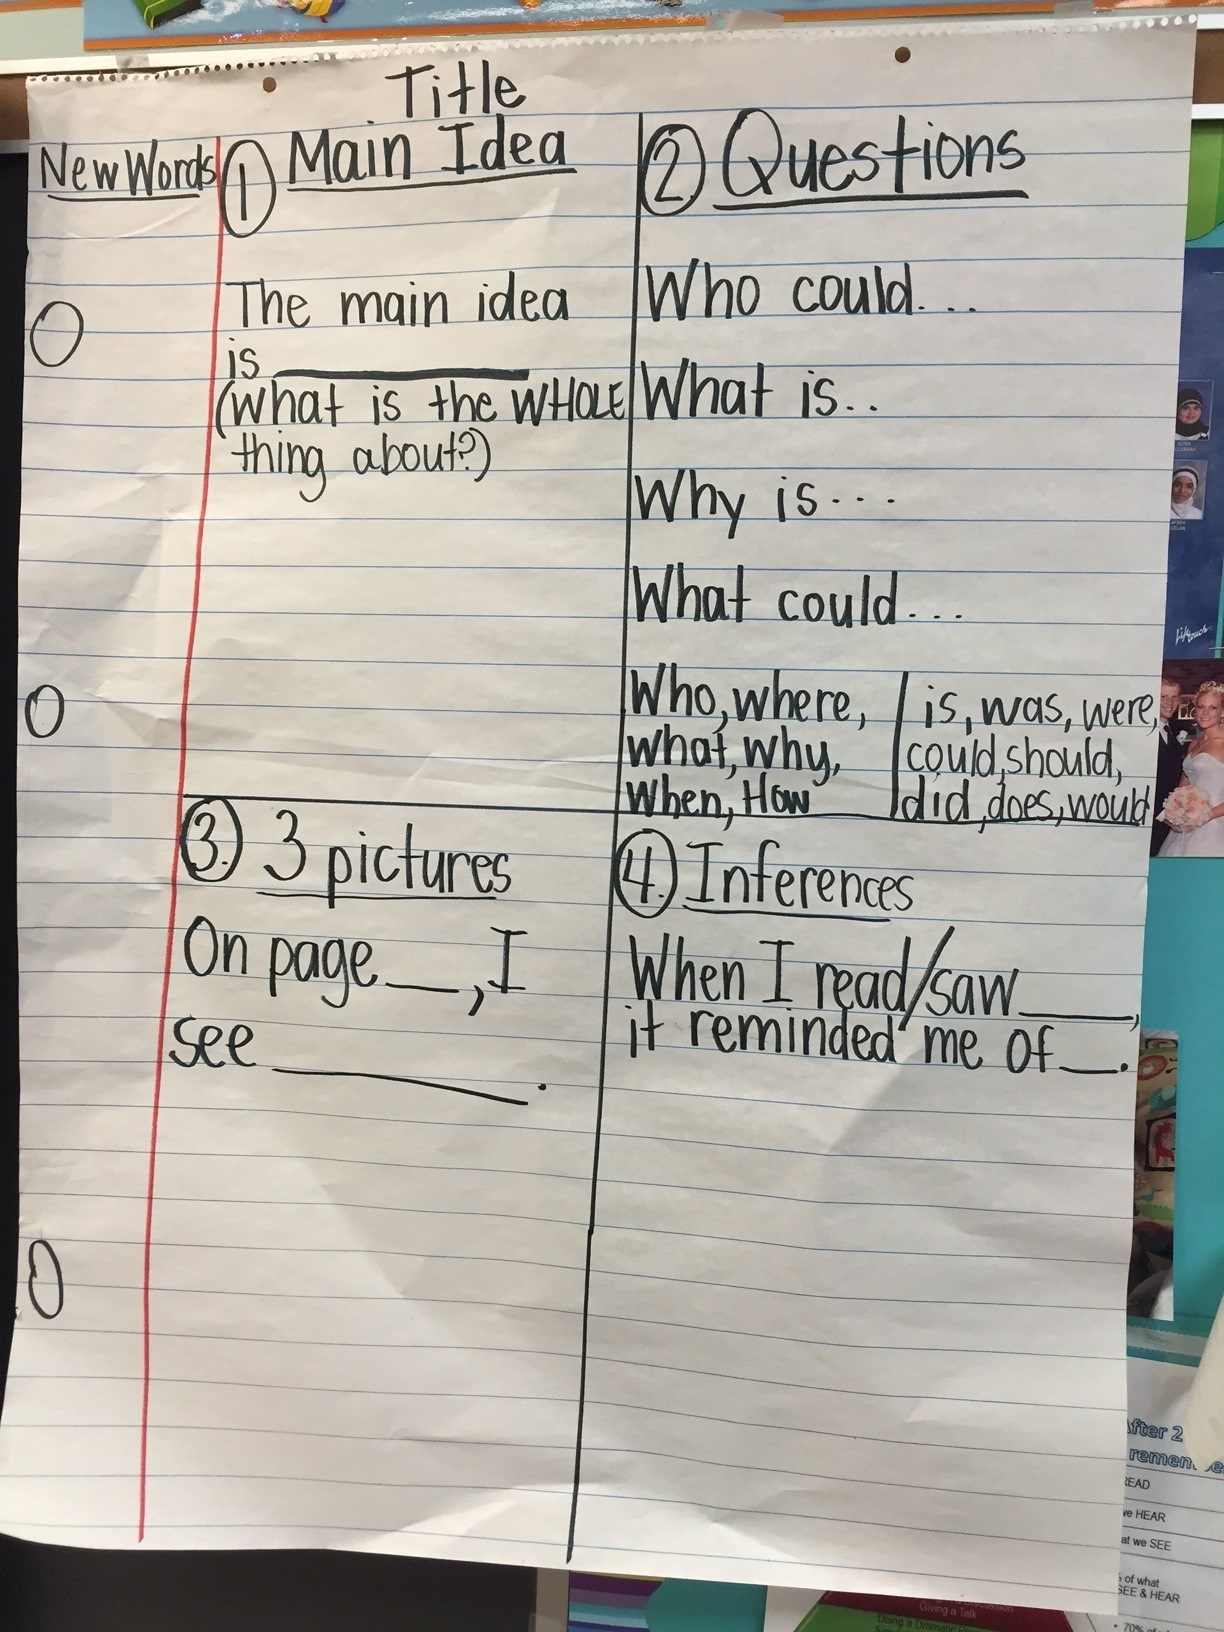 Title
New Words
1 Main Idea
The main idea
is
(what is the WHOLE
thing about?)
2. Questions
Who could...
What is..
Why is...
What could...
Who, where,
what, why,
When, How
is, was, were,
could, should,
did, does, would
3. 3 pictures
On page__, I
see ________.
4. Inferences
When I read/saw____,
it reminded me of__.
After 2
READ
we HEAR
at we SEE
of what
SEE & HEAR
Giving a Talk